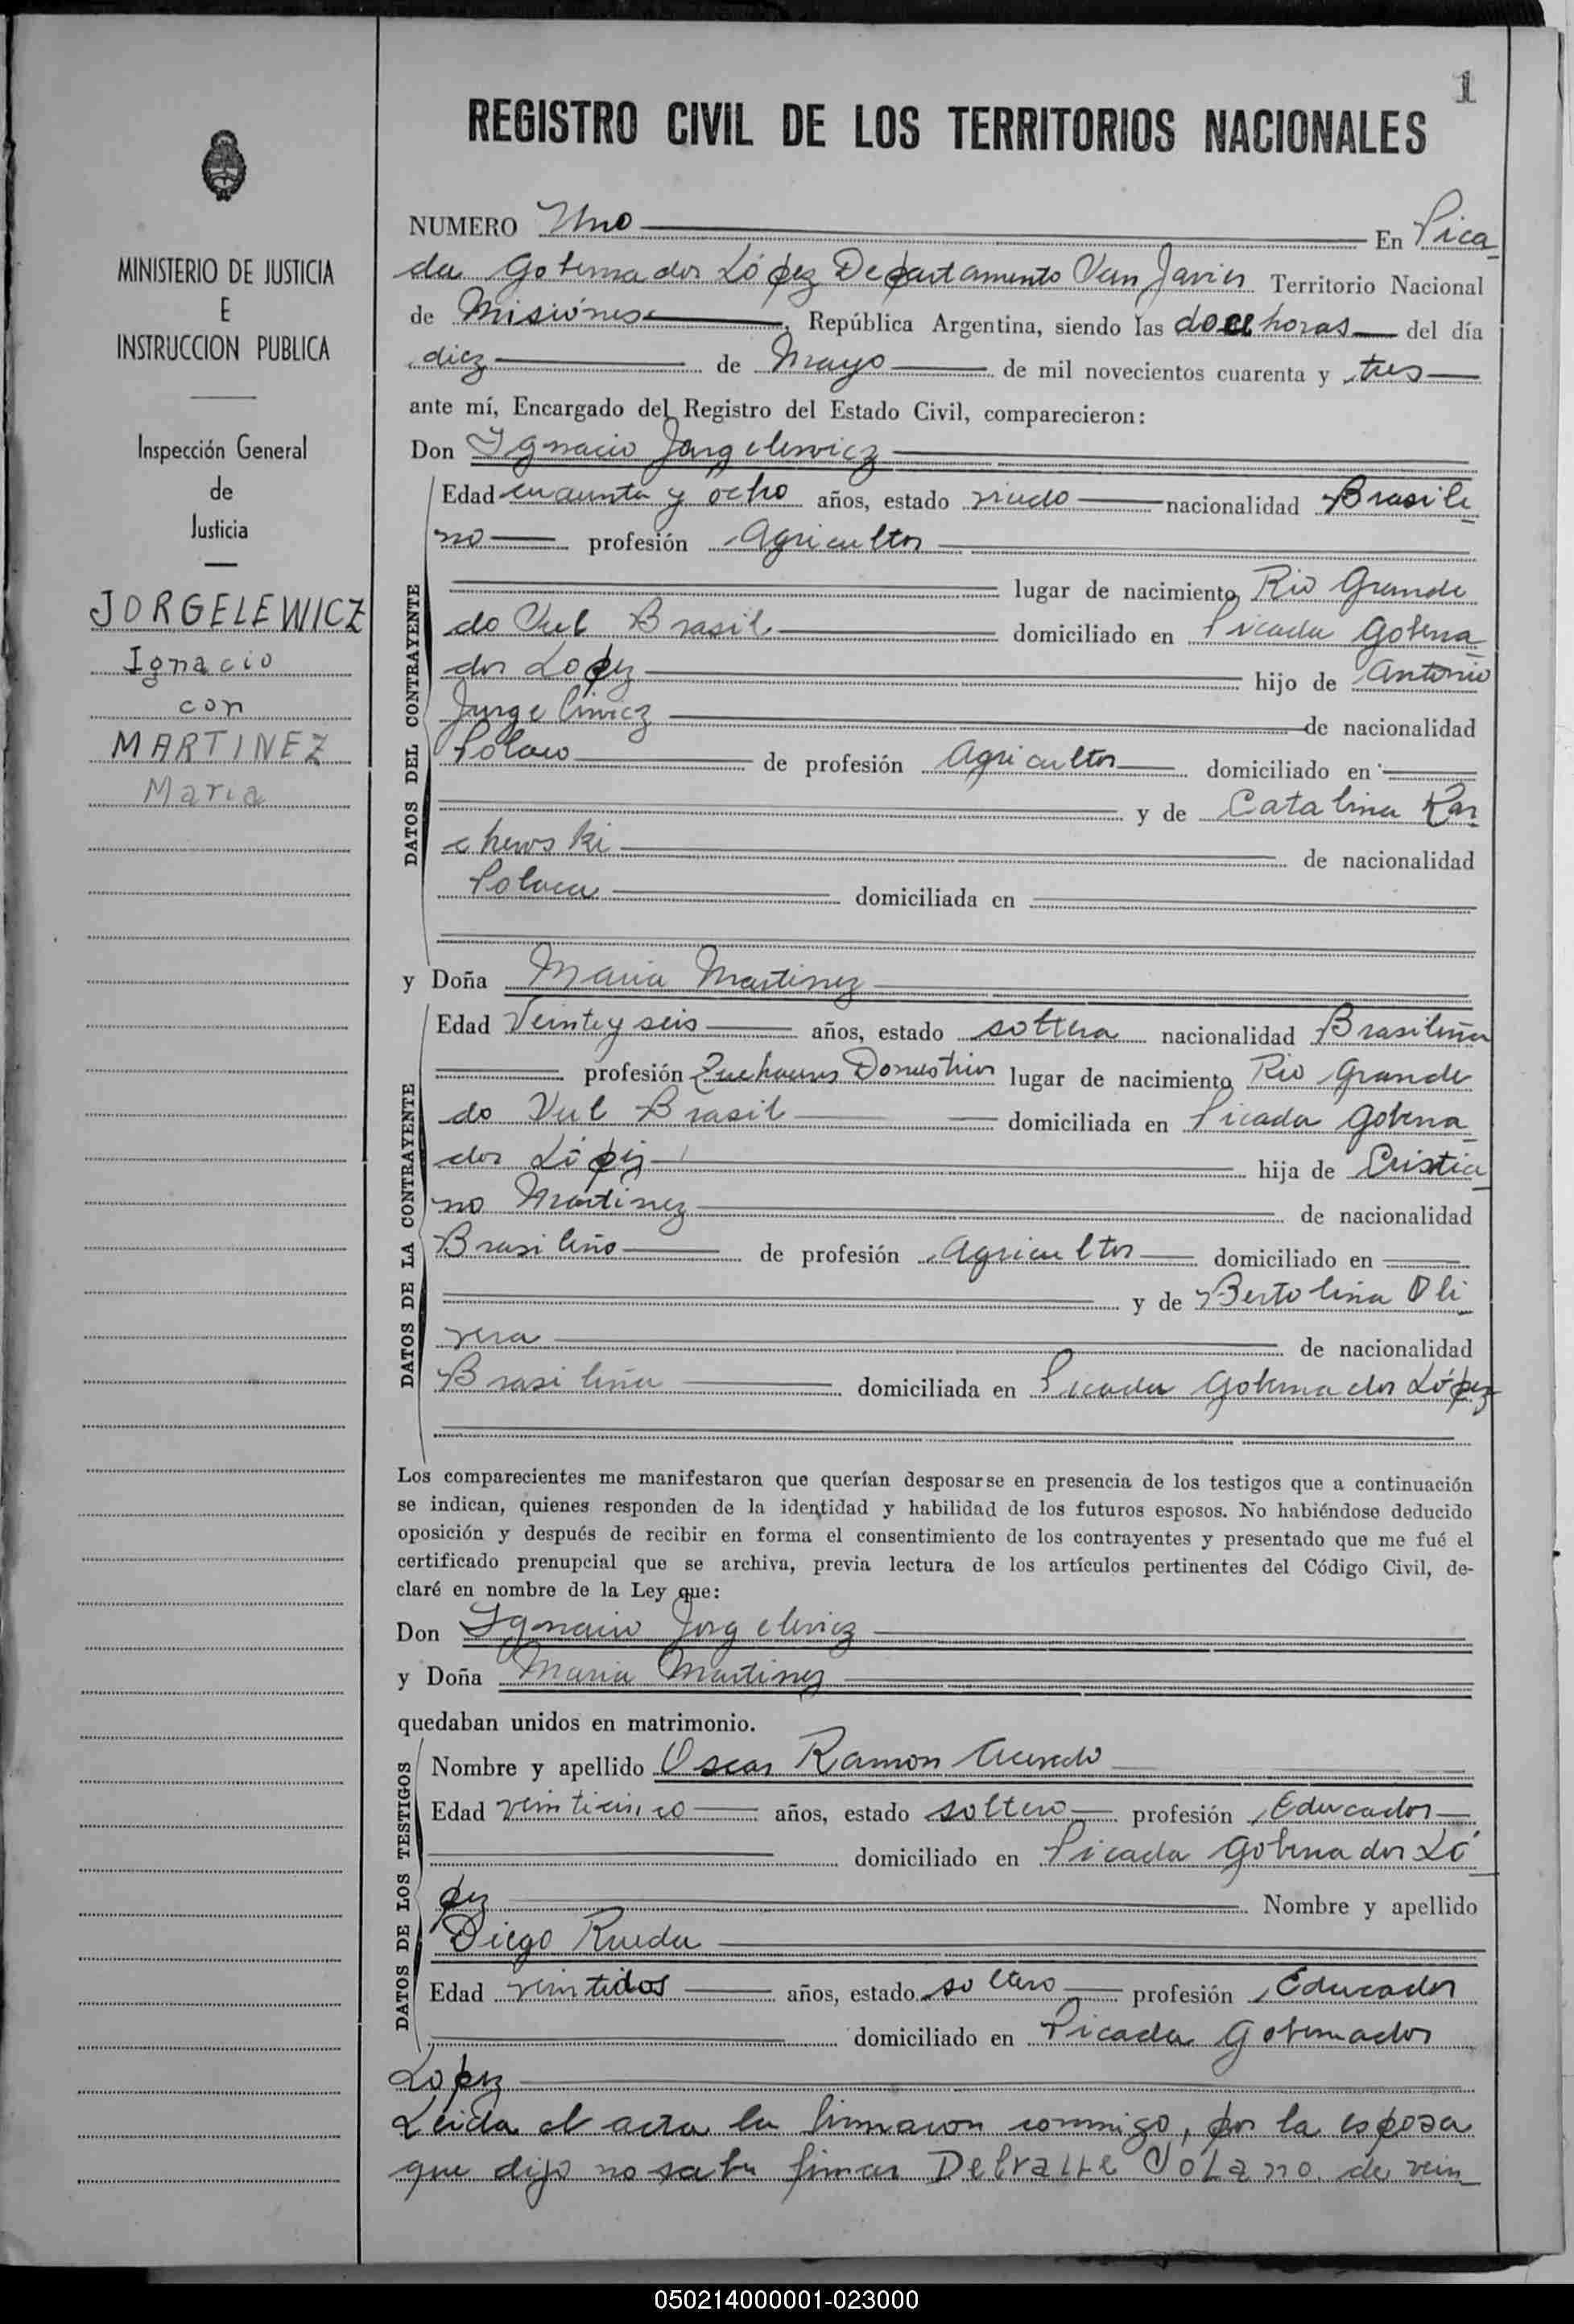 1
REGISTRO CIVIL DE LOS TERRITORIOS NACIONALES
MINISTERIO DE JUSTICIA
E
INSTRUCCION PUBLICA
Inspección General
de
Justicia
JORGELEWICZ
Ignacio
con
MARTINEZ
Maria
NUMERO Uno En Pica
da Gobernador López Departamento San Javier Territorio Nacional
de Misiónes, República Argentina, siendo las doce horas del día
diez de Mayo de mil novecientos cuarenta y tres
ante mí, Encargado del Registro del Estado Civil, comparecieron:
Don Ignacio Jorgelewicz
DATOS DEL CONTRAYENTE
Edad cuarenta y ocho años, estado viudo nacionalidad Brasile
no profesión Agricultor
lugar de nacimiento Rio Grande
do Sul Brasil domiciliado en Picada Goberna
dor Lopez hijo de Antonio
de nacionalidad
Polaco de profesión Agricultor domiciliado en
y de Catalina Kar
chewski de nacionalidad
Polaca domiciliada en
y Doña Maria Martinez
DATOS DE LA CONTRAYENTE
Edad Veinte y seis años, estado soltera nacionalidad Brasileña
profesión Quehaceres Domesticos lugar de nacimiento Rio Grande
do Sul Brasil domiciliada en Picada Goberna
dor López hija de Cristia
no Martinez de nacionalidad
Brasileño de profesión Agricultor domiciliado en
y de Bertolina Oli
vera de nacionalidad
Brasileña domiciliada en Picada Gobernador López
Los comparecientes me manifestaron que querían desposarse en presencia de los testigos que a continuación
se indican, quienes responden de la identidad y habilidad de los futuros esposos. No habiéndose deducido
oposición y después de recibir en forma el consentimiento de los contrayentes y presentado que me fué el
certificado prenupcial que se archiva, previa lectura de los artículos pertinentes del Código Civil, de-
claré en nombre de la Ley que:
Don Ignacio Jorgelewicz
y Doña Maria Martinez
quedaban unidos en matrimonio.
DATOS DE LOS TESTIGOS
Nombre y apellido Oscar Ramon Acevedo
Edad veinticinco años, estado soltero profesión Educador
domiciliado en Picada Gobernador Ló
pez Nombre y apellido
Diego Rueda
Edad veintidos años, estado soltero profesión Educador
domiciliado en Picada Gobernador
Lopez
Leida el acta la firmaron conmigo, por la esposa
que dijo no saber firmar Delvalle Solano de vein
050214000001-023000